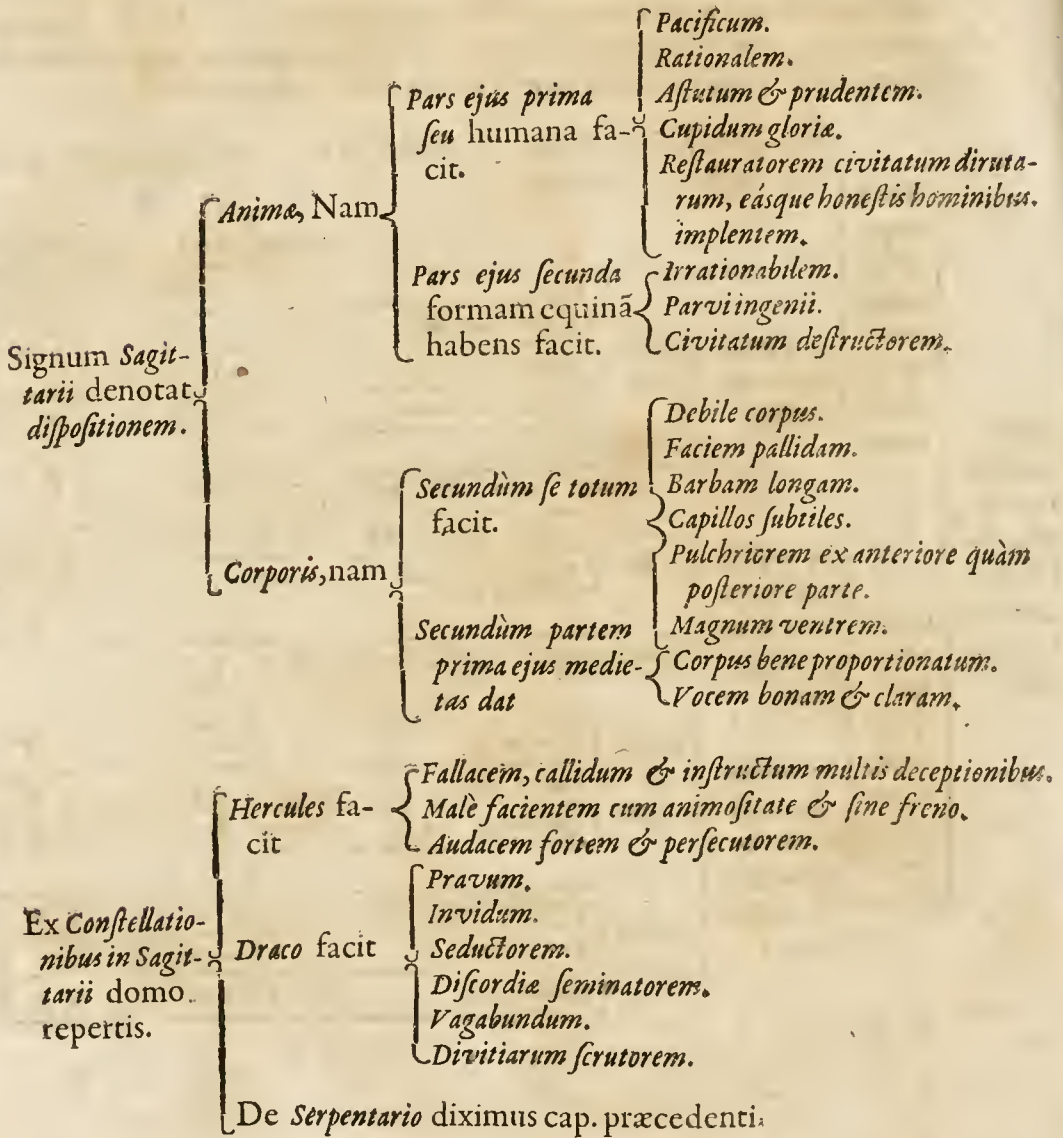 Signum Sagit-
tarii denotat
dispositionem.
Animæ, Nam
Pars ejus prima
seu humana fa-
cit.
Pacificum.
Rationalem.
Astutum & prudentem.
Cupidum gloriæ.
Restauratorem civitatum diruta-
rum, eásque honestis hominibus.
implentem.
Pars ejus secunda
formam equinã
habens facit.
Irrationabilem.
Parvi ingenii.
Civitatum destructorem.
Corporis, nam
Secundùm se totum
facit.
Debile corpus.
Faciem pallidam.
Barbam longam.
Capillos subtiles.
Pulchriorem ex anteriore quàm
posteriore parte.
Magnum ventrem.
Secundùm partem
prima ejus medie-
tas dat
Corpus bene proportionatum.
Vocem bonam & claram.
Ex Constellatio-
nibus in Sagit-
tarii domo
repertis.
Hercules fa-
cit
Fallacem, callidum & instructum multis deceptionibus.
Malè facientem cum animositate & sine freno.
Audacem fortem & persecutorem.
Draco facit
Pravum.
Invidum.
Seductorem.
Discordiæ seminatorem.
Vagabundum.
Divitiarum scrutorem.
De Serpentario diximus cap. præcedenti.